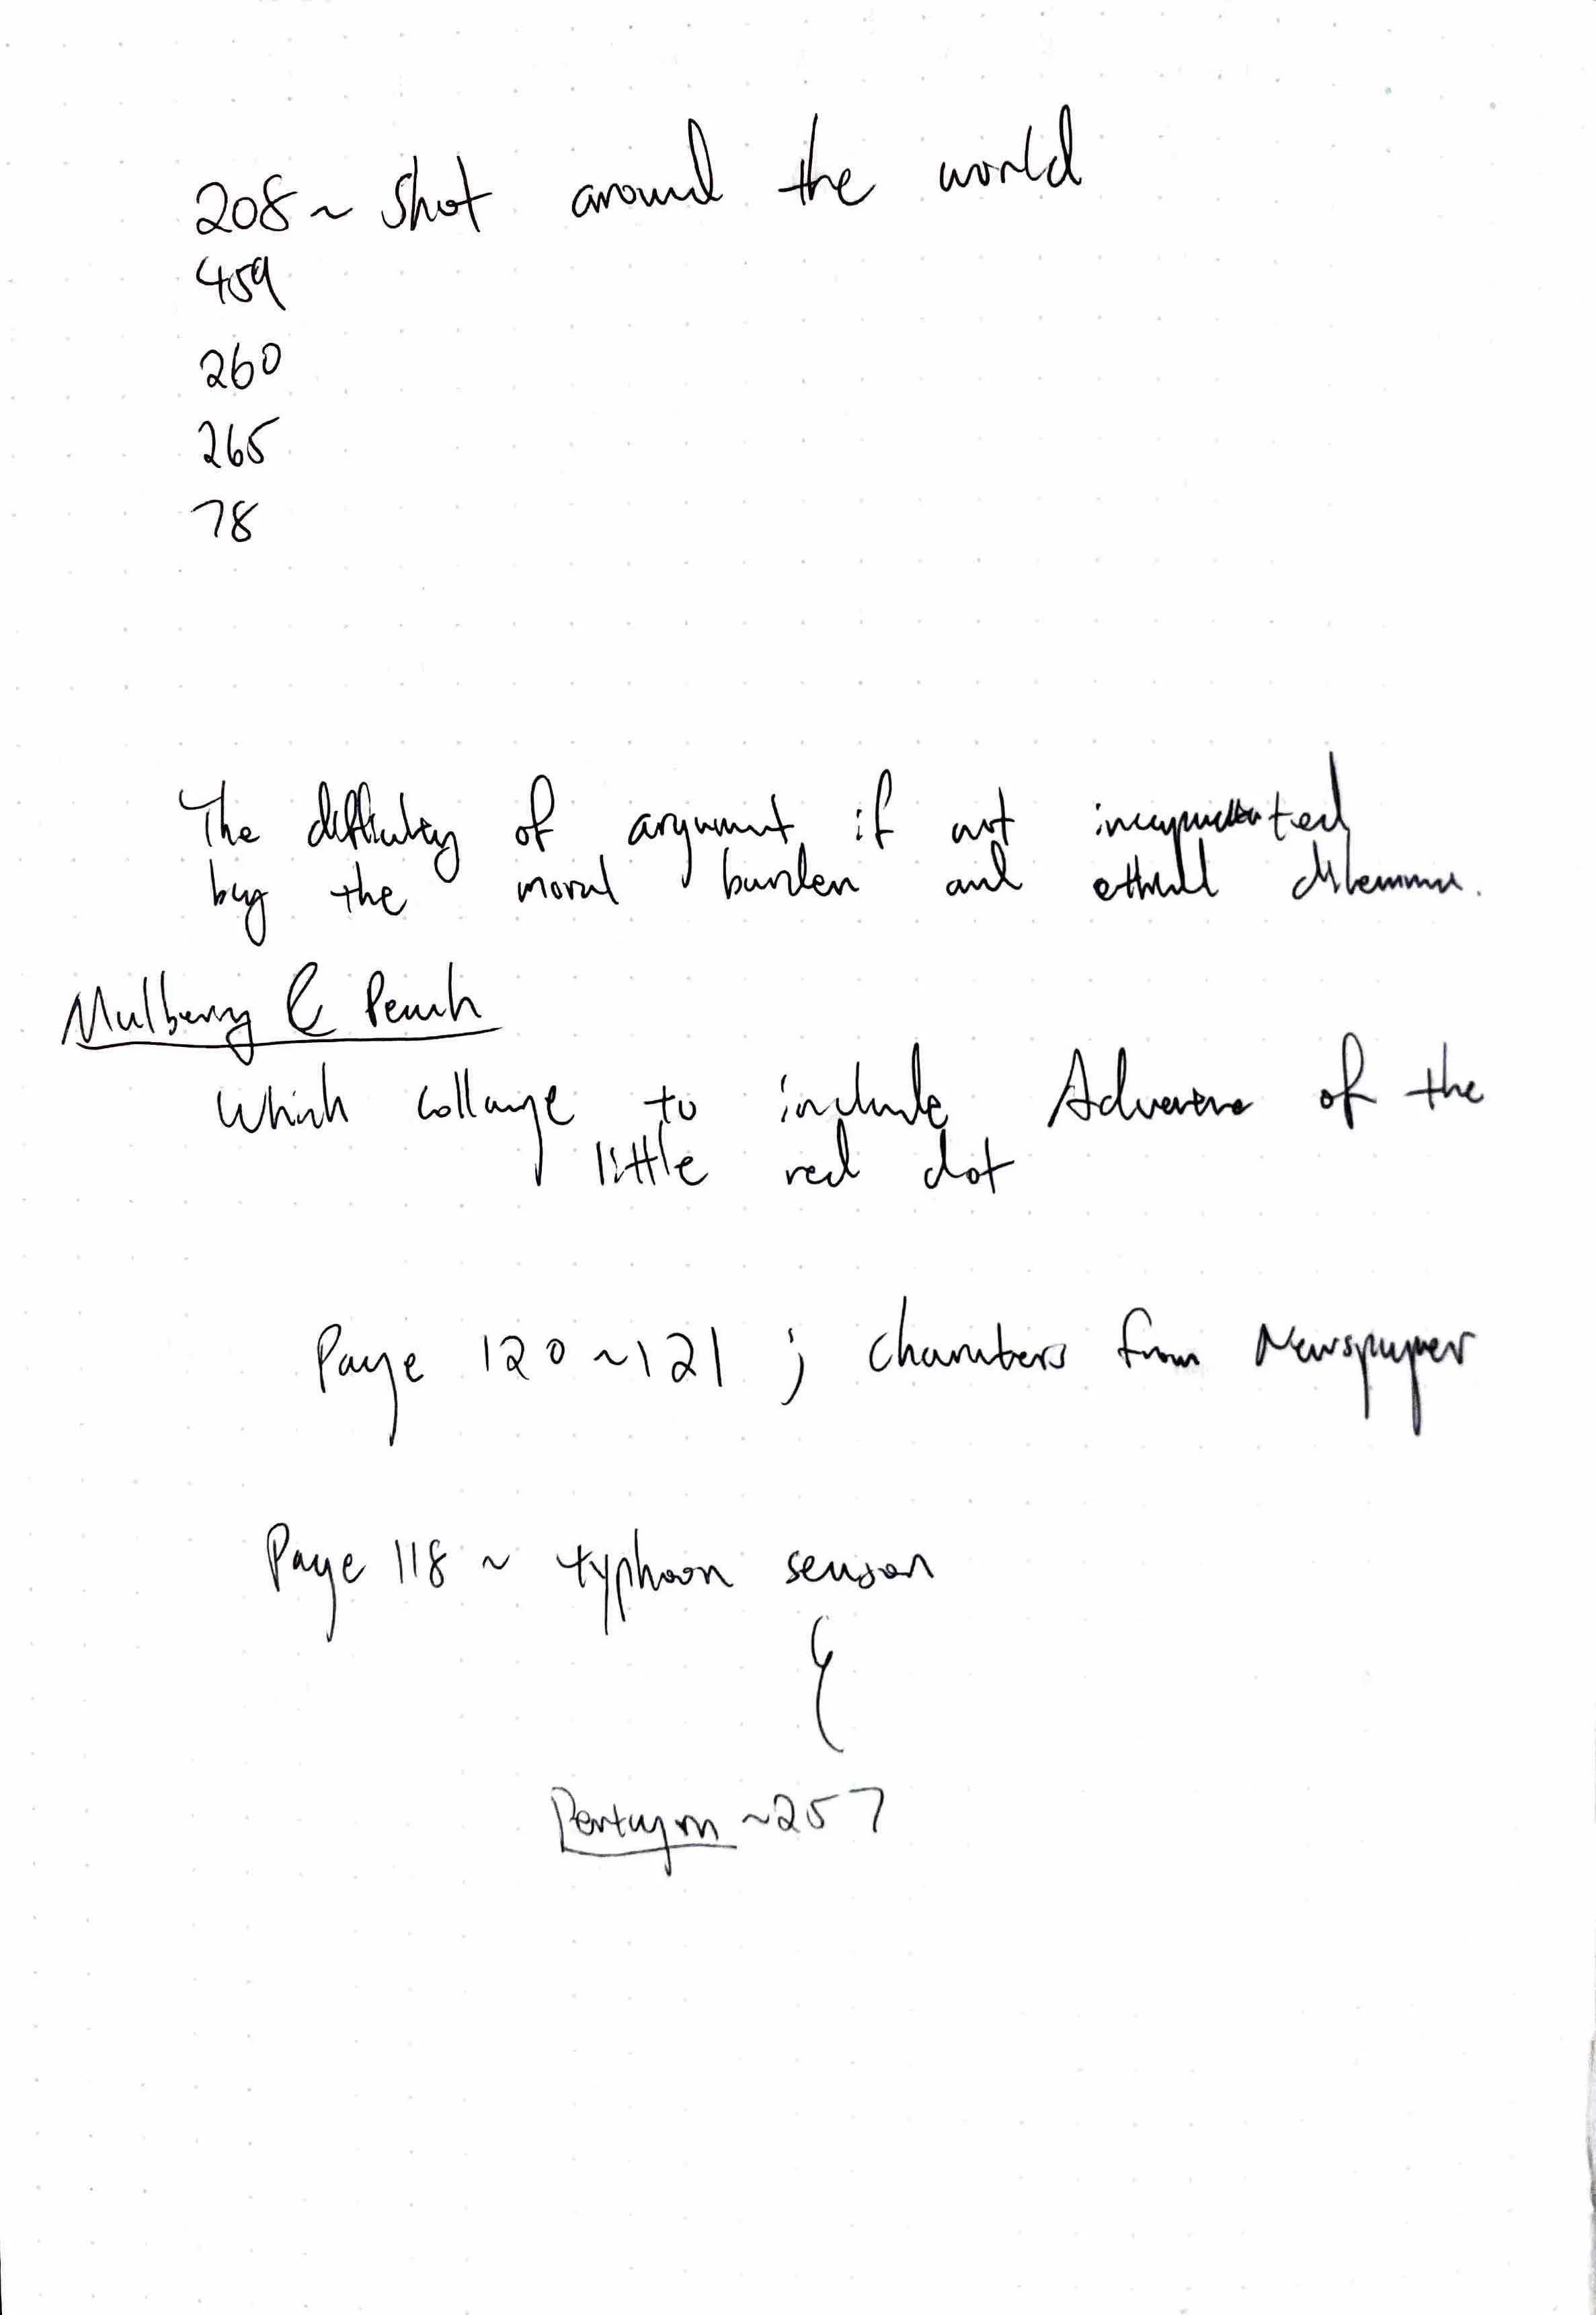 208 ~ Shot around the world
459
260
265
78
The difficulty of argument if not incapacitated
by the moral burden and ethical dilemma.
Mulberry & Peach
Which collage to include Adventure of the
little red dot
Page 120 ~ 121 ; characters from Newspaper
Page 118 ~ typhoon season
Pentagon ~ 257